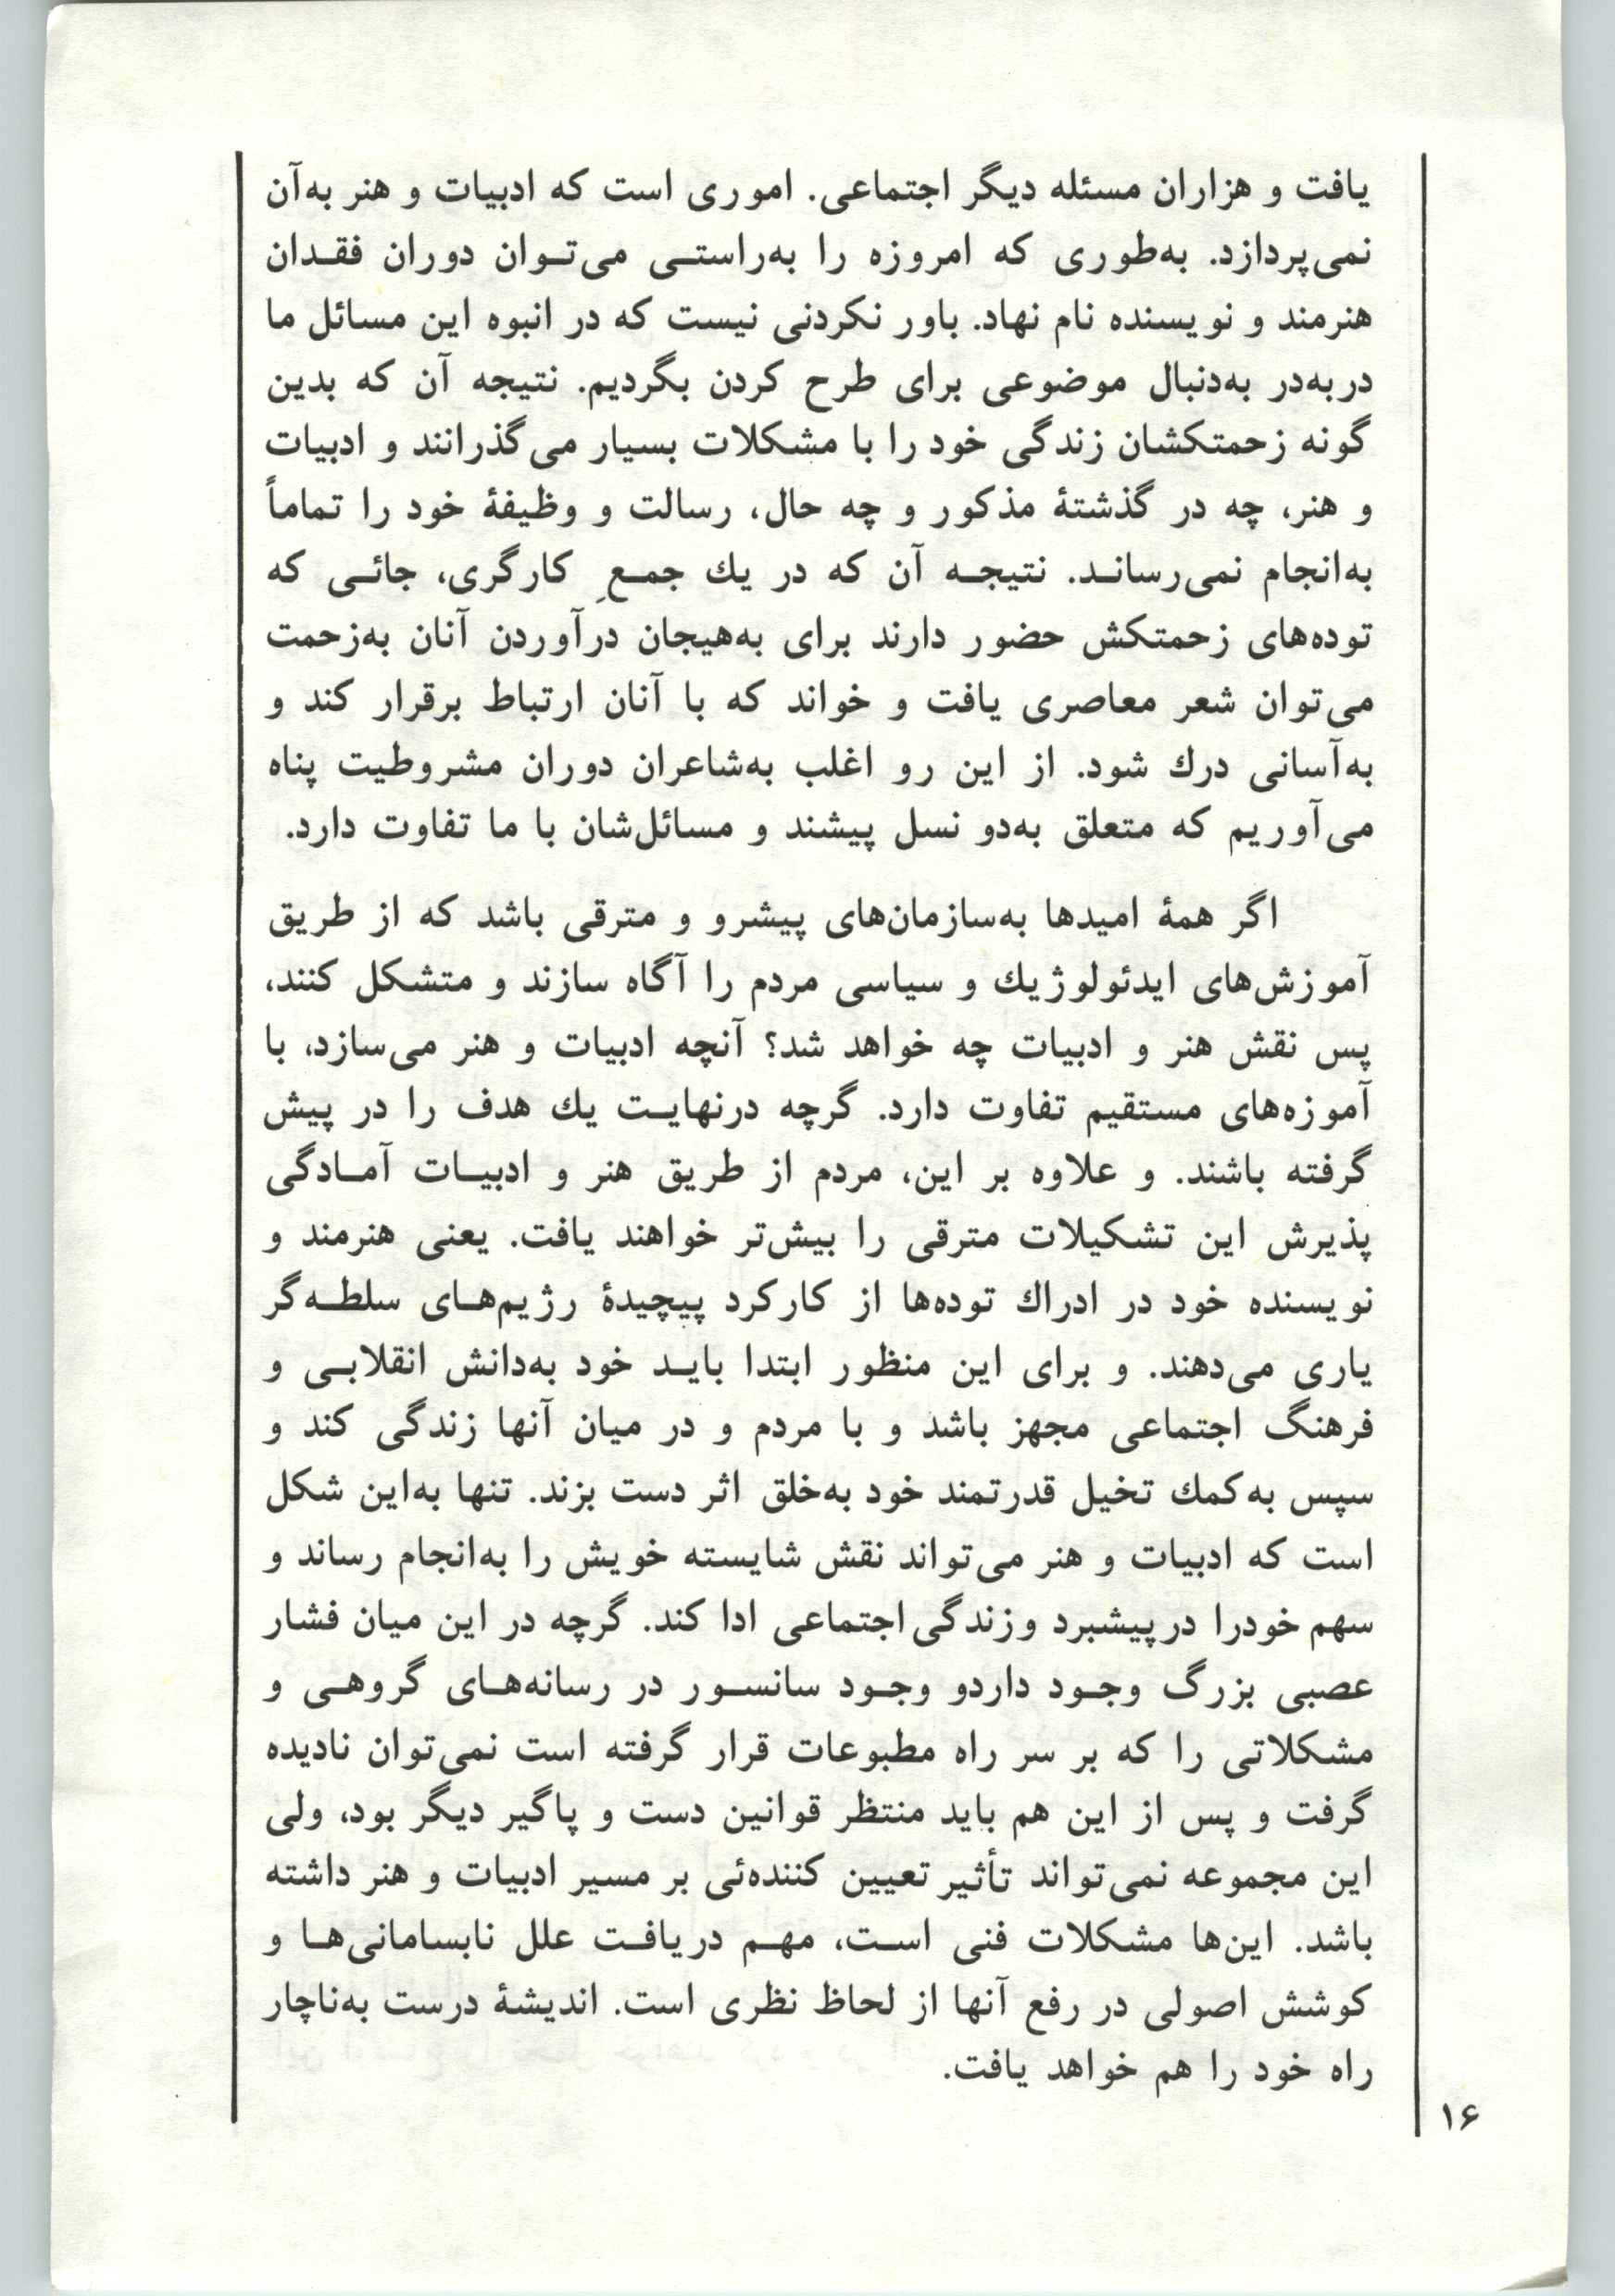 یافت و هزاران مسئله دیگر اجتماعی. اموری است که ادبیات و هنر به‌آن
نمی‌پردازد. به‌طوری که امروزه را به‌راستـی می‌تـوان دوران فقـدان
هنرمند و نویسنده نام نهاد. باور نکردنی نیست که در انبوه این مسائل ما
دربه‌در به‌دنبال موضوعی برای طرح کردن بگردیم. نتیجه آن که بدین
گونه زحمتکشان زندگی خود را با مشکلات بسیار می‌گذرانند و ادبیات
و هنر، چه در گذشتهٔ مذکور و چه حال، رسالت و وظیفهٔ خود را تماماً
به‌انجام نمی‌رسانـد. نتیجـه آن که در یك جمـعِ کارگری، جائـی که
توده‌های زحمتکش حضور دارند برای به‌هیجان درآوردن آنان به‌زحمت
می‌توان شعر معاصری یافت و خواند که با آنان ارتباط برقرار کند و
به‌آسانی درك شود. از این رو اغلب به‌شاعران دوران مشروطیت پناه
می‌آوریم که متعلق به‌دو نسل پیشند و مسائل‌شان با ما تفاوت دارد.
اگر همهٔ امیدها به‌سازمان‌های پیشرو و مترقی باشد که از طریق
آموزش‌های ایدئولوژیك و سیاسی مردم را آگاه سازند و متشکل کنند،
پس نقش هنر و ادبیات چه خواهد شد؟ آنچه ادبیات و هنر می‌سازد، با
آموزه‌های مستقیم تفاوت دارد. گرچه درنهایـت یك هدف را در پیش
گرفته باشند. و علاوه بر این، مردم از طریق هنر و ادبیـات آمـادگی
پذیرش این تشکیلات مترقی را بیش‌تر خواهند یافت. یعنی هنرمند و
نویسنده خود در ادراك توده‌ها از کارکرد پیچیدهٔ رژیم‌هـای سلطـه‌گر
یاری می‌دهند. و برای این منظور ابتدا بایـد خود به‌دانش انقلابـی و
فرهنگ اجتماعی مجهز باشد و با مردم و در میان آنها زندگی کند و
سپس به‌کمك تخیل قدرتمند خود به‌خلق اثر دست بزند. تنها به‌این شکل
است که ادبیات و هنر می‌تواند نقش شایسته خویش را به‌انجام رساند و
سهم خودرا درپیشبرد وزندگی‌اجتماعی ادا کند. گرچه در این میان فشار
عصبی بزرگ وجـود داردو وجـود سانسـور در رسانه‌هـای گروهـی و
مشکلاتی را که بر سر راه مطبوعات قرار گرفته است نمی‌توان نادیده
گرفت و پس از این هم باید منتظر قوانین دست و پاگیر دیگر بود، ولی
این مجموعه نمی‌تواند تأثیر تعیین کننده‌ئی بر مسیر ادبیات و هنر داشته
باشد. این‌ها مشکلات فنی اسـت، مهـم دریافـت علل نابسامانی‌هـا و
کوشش اصولی در رفع آنها از لحاظ نظری است. اندیشهٔ درست به‌ناچار
راه خود را هم خواهد یافت.
۱۶